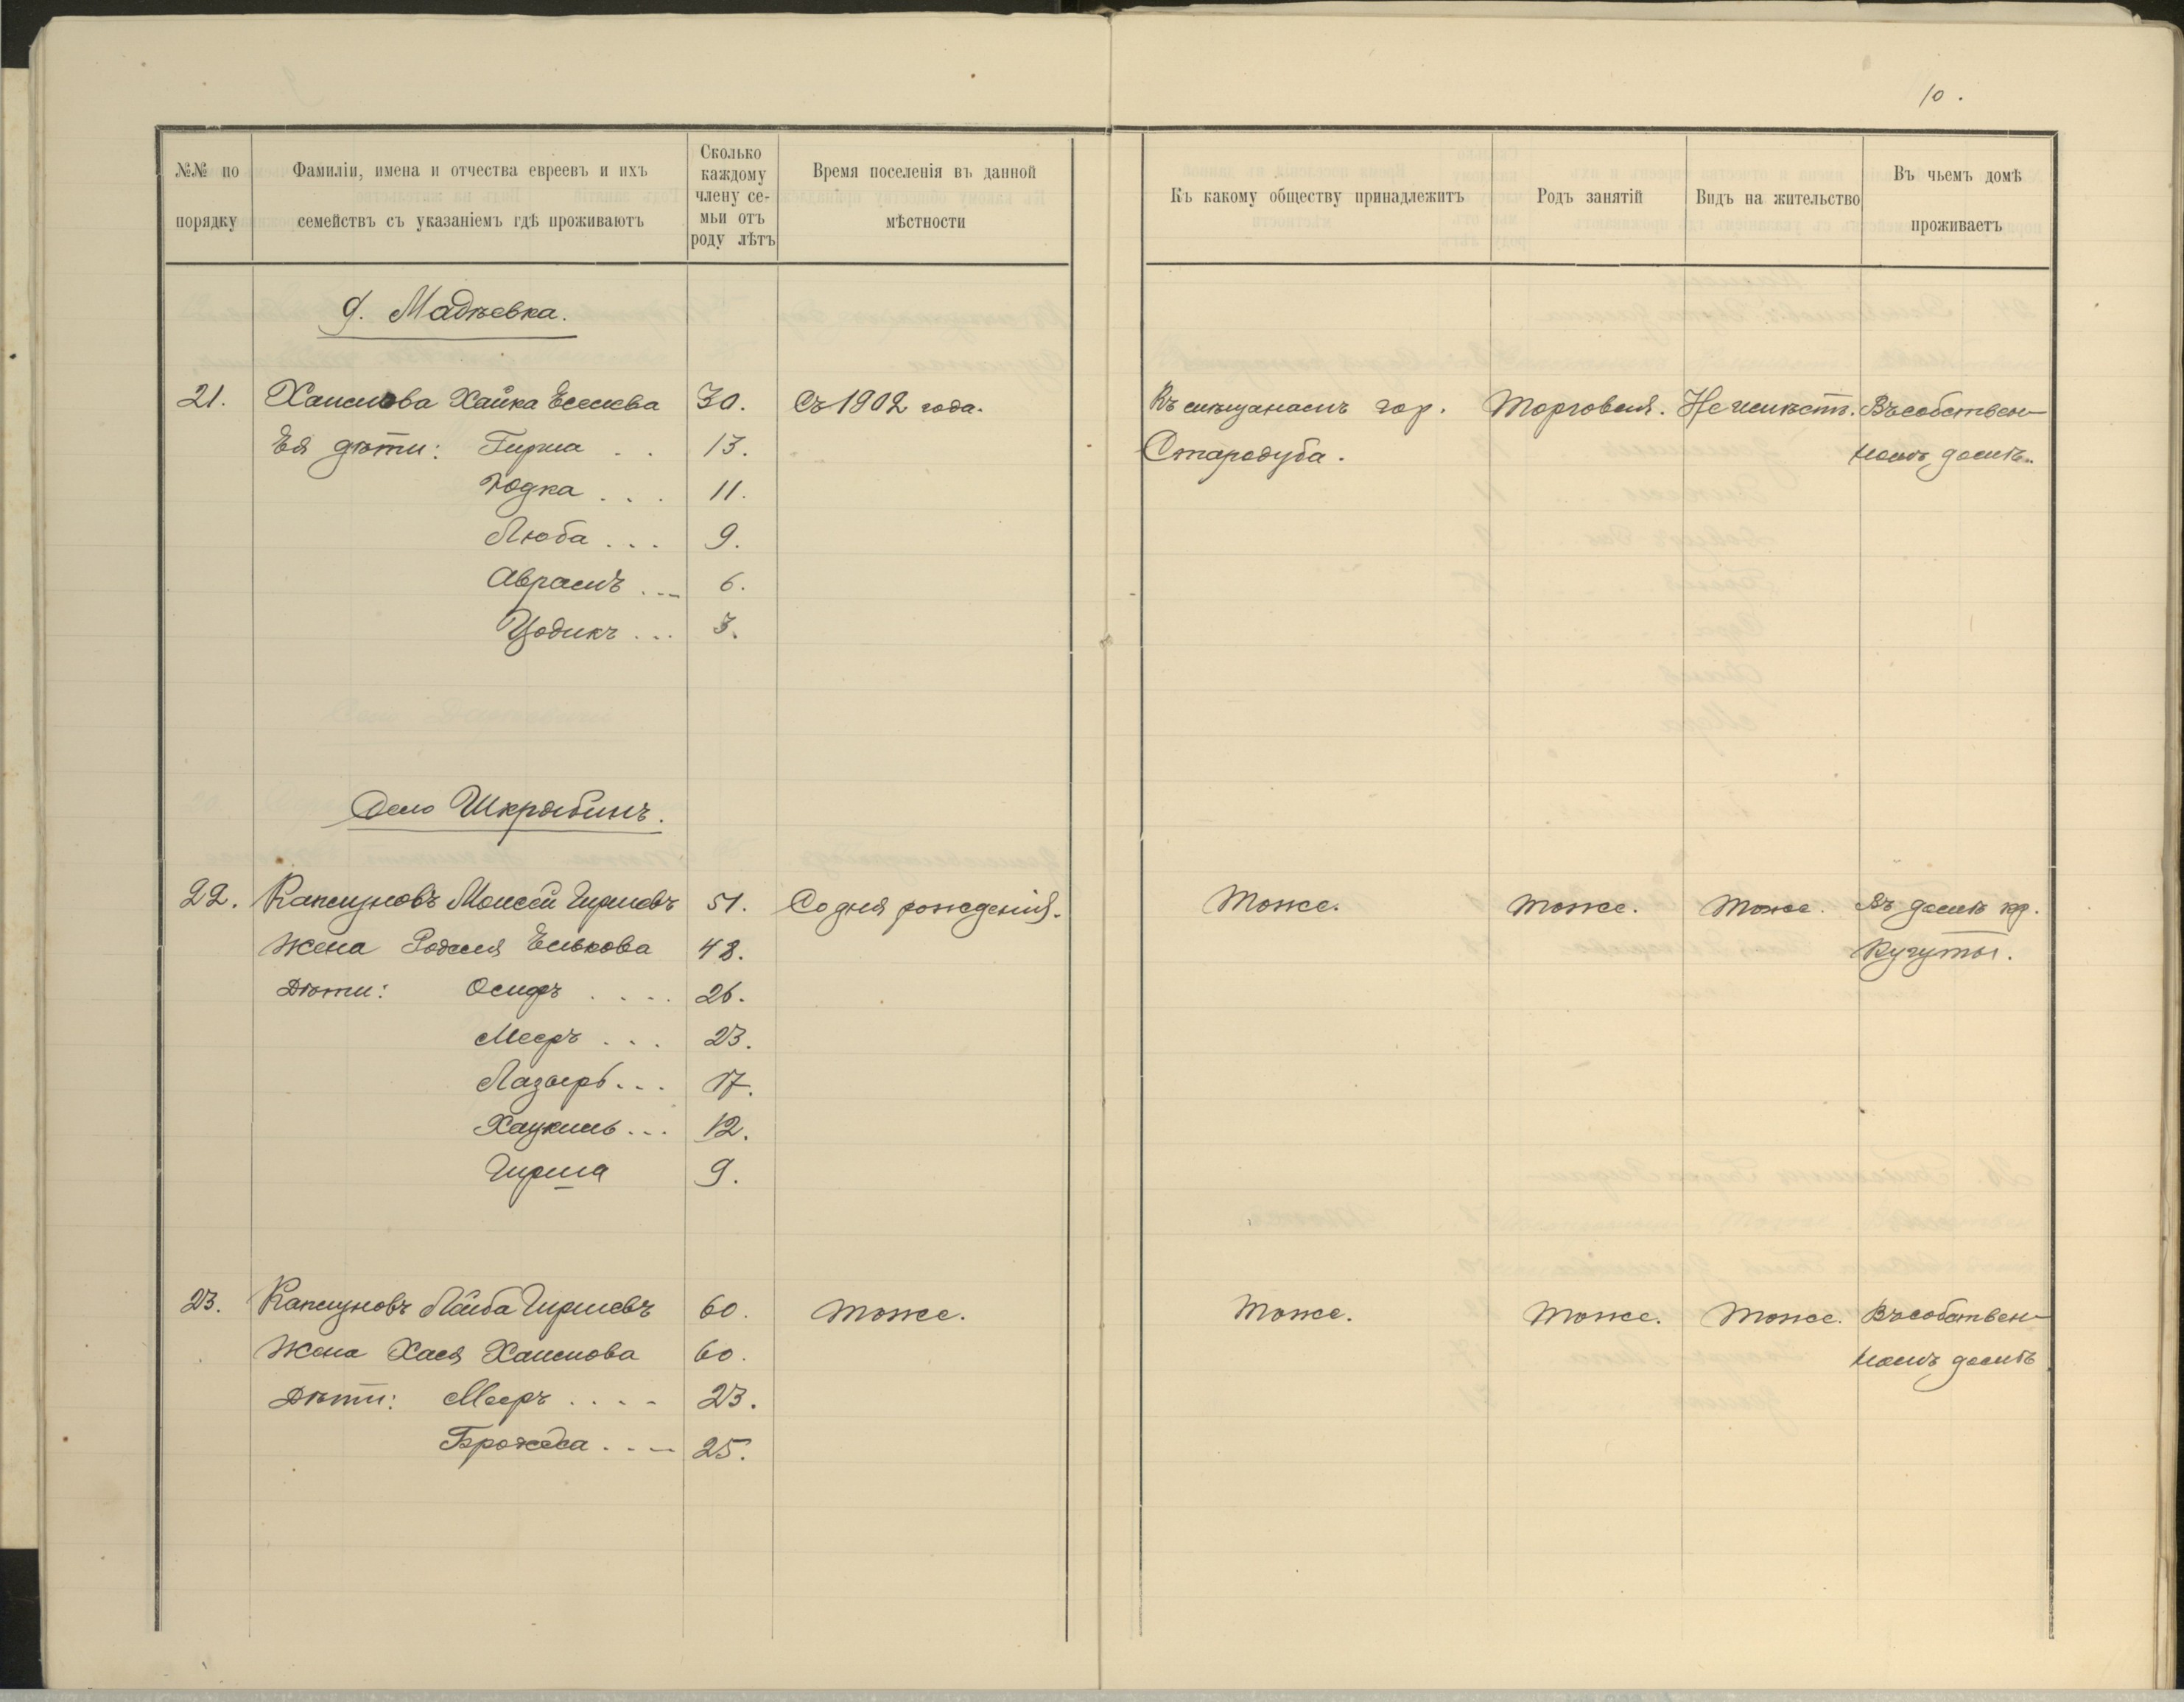 10.
№№ по порядку
Фамиліи, имена и отчества евреевъ и ихъ семействъ съ указаніемъ гдѣ проживаютъ
Сколько каждому члену семьи отъ роду лѣтъ
Время поселенія въ данной мѣстности
Къ какому обществу принадлежитъ
Родъ занятій
Видъ на жительство
Въ чьемъ домѣ проживаетъ
д. Мадѣевка.
21. Хаимова Хайка Есеева 30. Съ 1902 года. Къ мѣщанамъ гор. Торговля. Не имѣетъ. Въ собствен-
Ея дѣти: Гирша . . 13. Стародуба. номъ домѣ.
Юдка . . . 11.
Люба . . . 9.
Аврамъ . . . 6.
Цодикъ . . . 3.
Село Шкрябинъ.
22. Капцуновъ Моисей Гиршевъ 51. Со дня рожденія. Тоже. Тоже. Тоже. Въ домѣ кр.
Жена Родаля Елькова 48. Кугуты.
Дѣти: Осифъ . . . . 26.
Мееръ . . . 23.
Лазарь . . . 17.
Хацкиль . . . 12.
Гирша 9.
23. Капцуновъ Лейба Гиршевъ 60. Тоже. Тоже. Тоже. Тоже. Въ собствен-
Жена Хася Хаимова 60. номъ домѣ
Дѣти: Мееръ . . . . 23.
25.